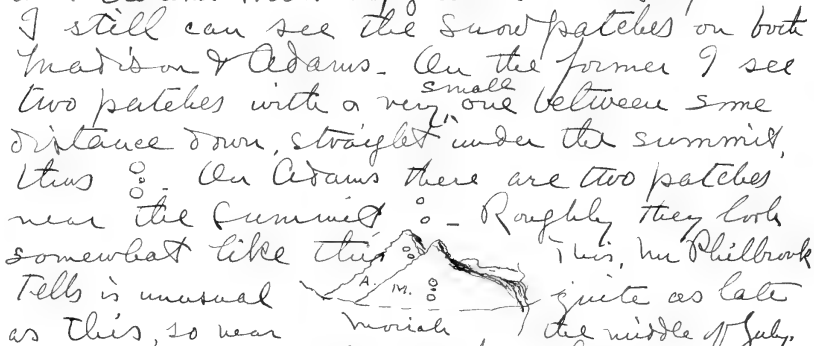 I still can see the snow patches on both
Madison & Adams - On the former I see
two patches with a very small one between some
distance down, straight under the summit,
thus - On Adams there are two patches
near the summit - Roughly they look
somewhat like this This, Mr Philbrook
Tells is unusual A. M. quite as late
as This, so near Moriah the middle of July.